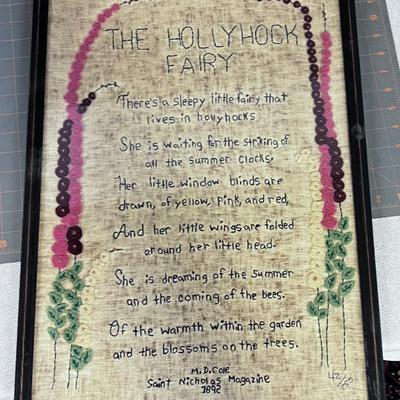 THE HOLLYHOCK
FAIRY
There's a sleepy little fairy that
lives in hollyhocks
She is waiting for the striking of
all the summer clocks.
Her little window blinds are
drawn, of yellow, pink, and red,
And her little wings are folded
around her little head.
She is dreaming of the summer
and the coming of the bees.
Of the warmth within the garden
and the blossoms on the trees.
M.D. Cole
Saint Nicholas Magazine
1892